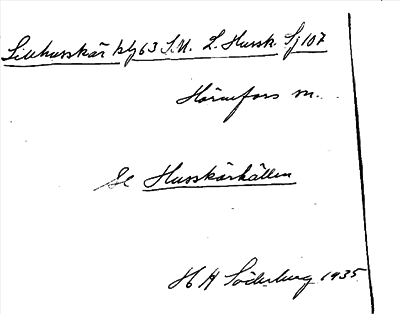 Lillhusskär blg 63 S.U. L. Hussk. Sj 107
Hörnefors m.
Se Husskärhällen
H H Söderberg 1935